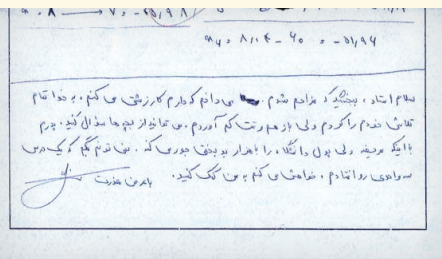 سلام استاد، ببخشید که مزاحم شدم. می دانم که دارم کار زشتی می کنم، به خدا تمام
تلاش خودم را کردم ولی باز هم وقت کم آوردم. می توانید از بچه ها سؤال کنید. پدرم
با اینکه مریضه ولی پول دانشگاه را با هزار بدبختی جور می کنه. نمی تونم بگم که یک درس
سه واحدی رو افتادم، خواهش می کنم به من کمک کنید.
با عرض معذرت